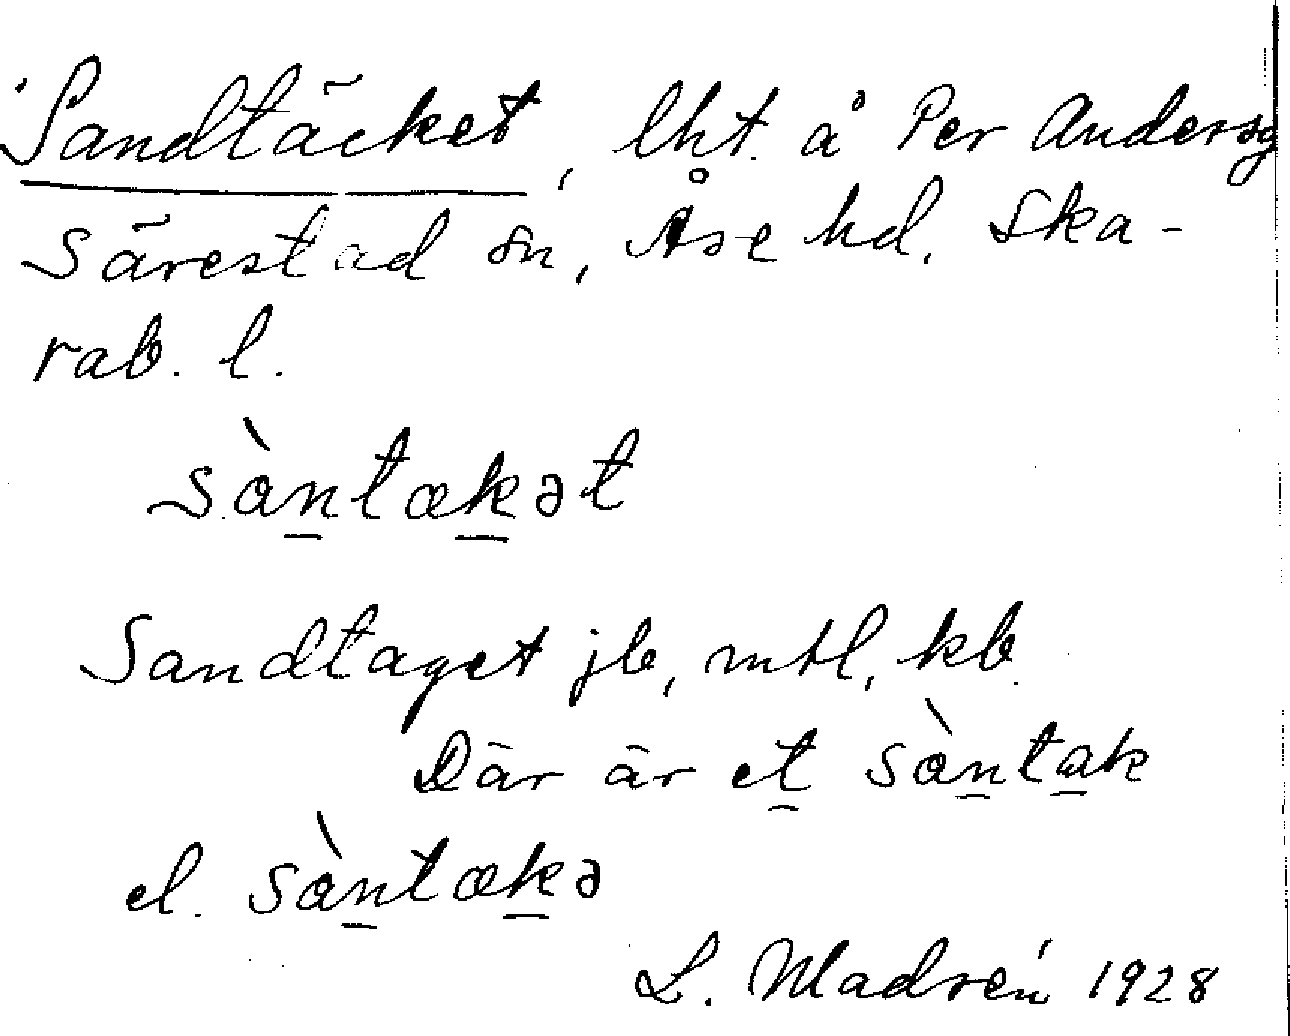 Sandtäcket, lht. å Per Andersg
Särestad sn, Åse hd. Ska-
rab. l.
sàn̲tæk̲ət
Sandtaget jb, mtl, kb.
Där är et̲ sàn̲ta̲k
el. sàn̲tæk̲ə
L. Madrén 1928